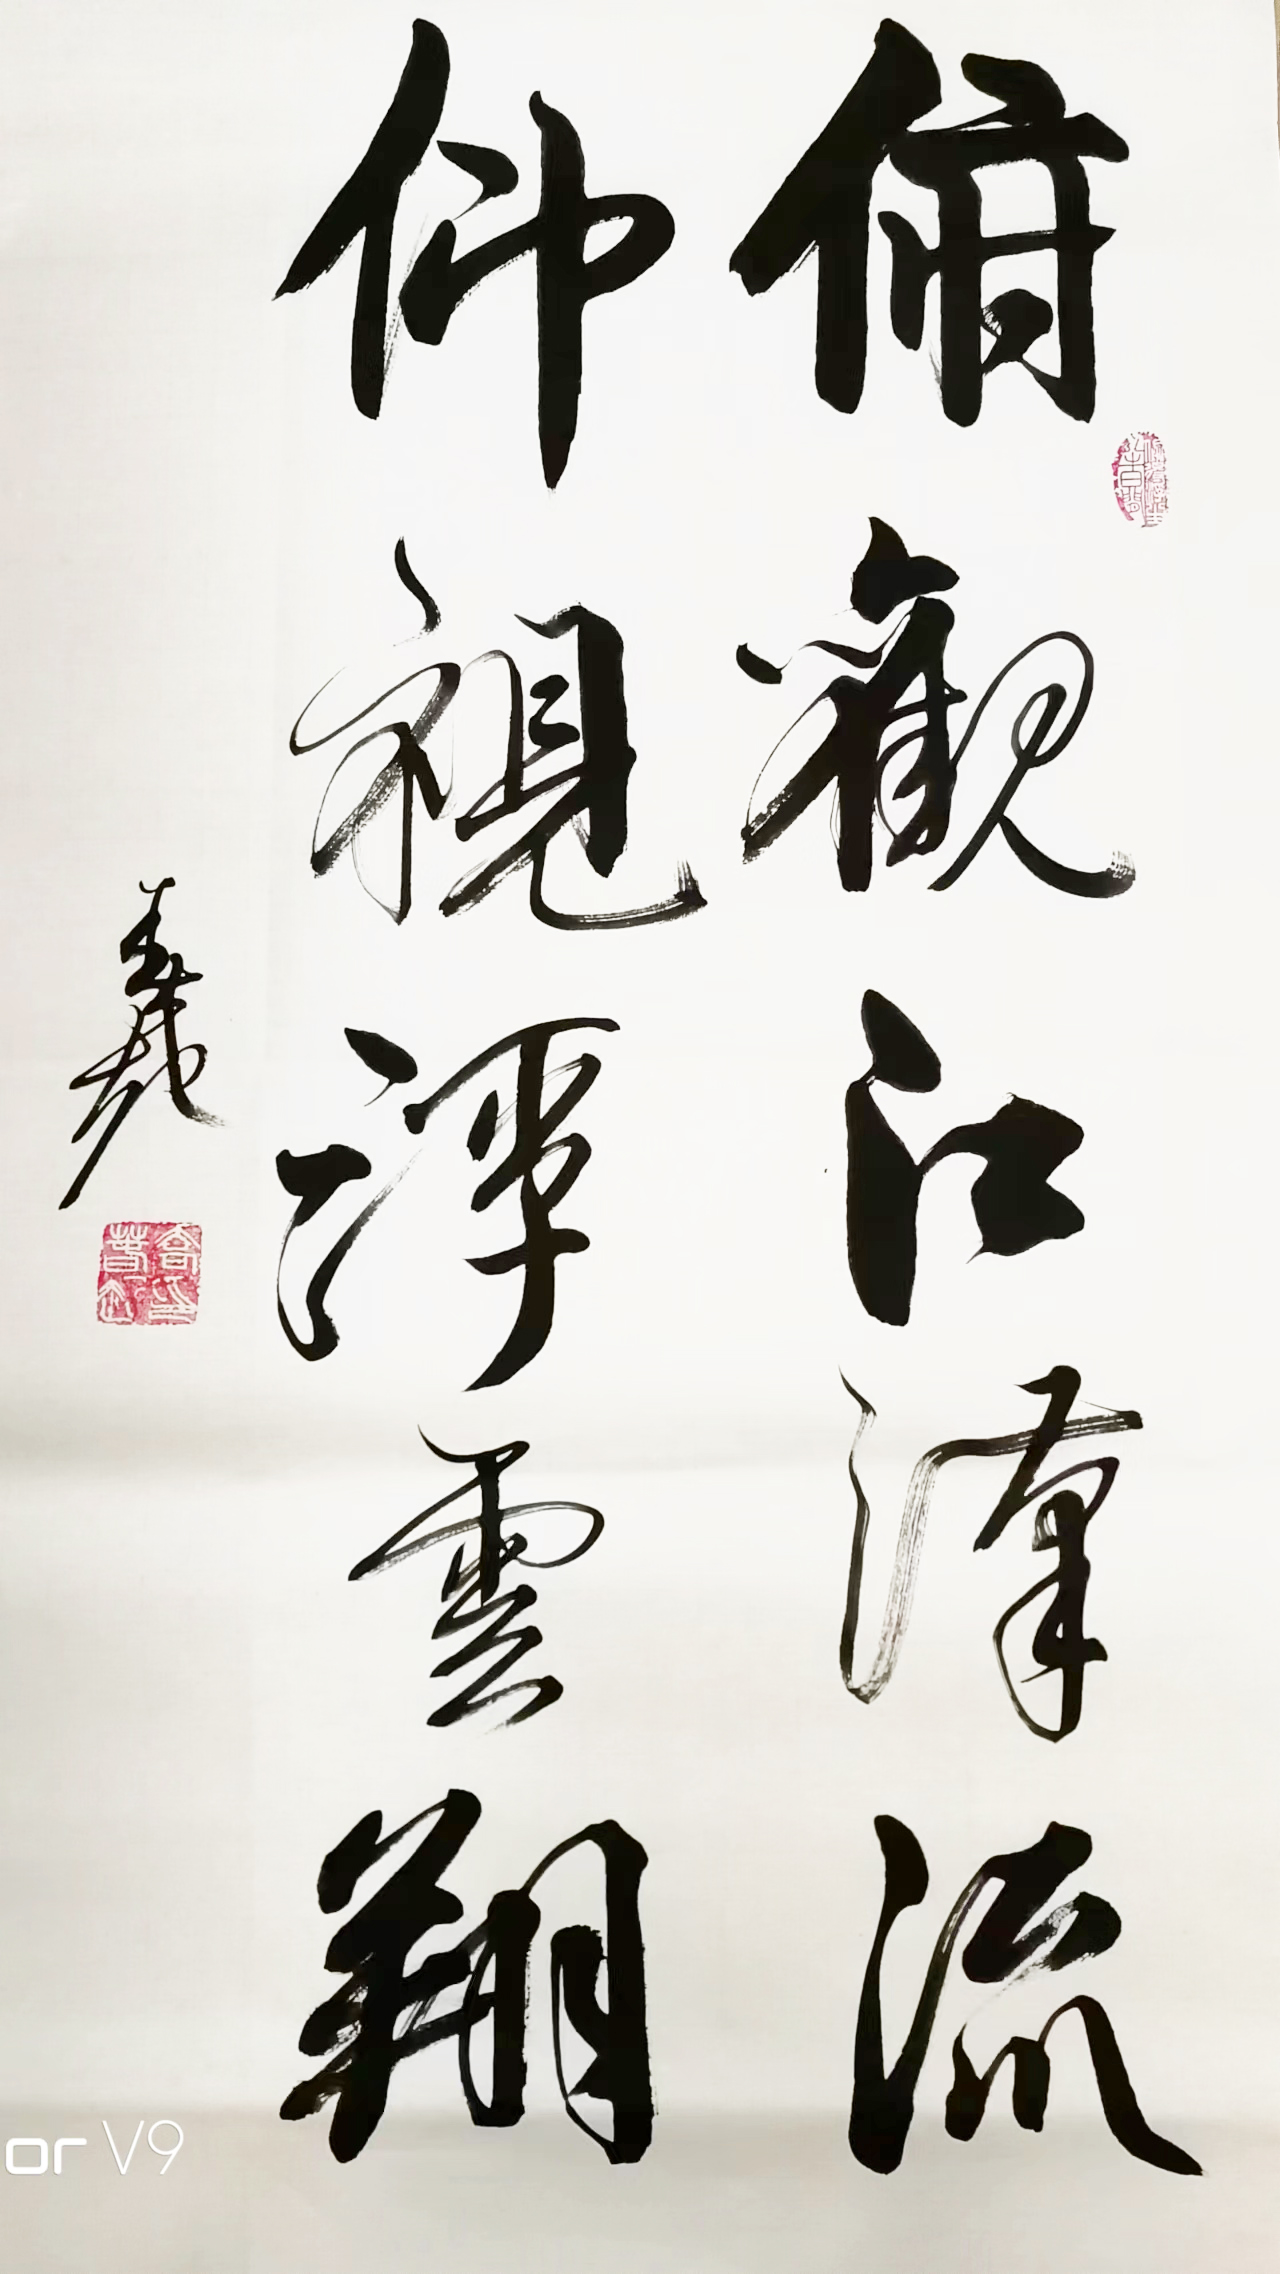 俯觀江漢流
仰視浮雲翔
義
or V9